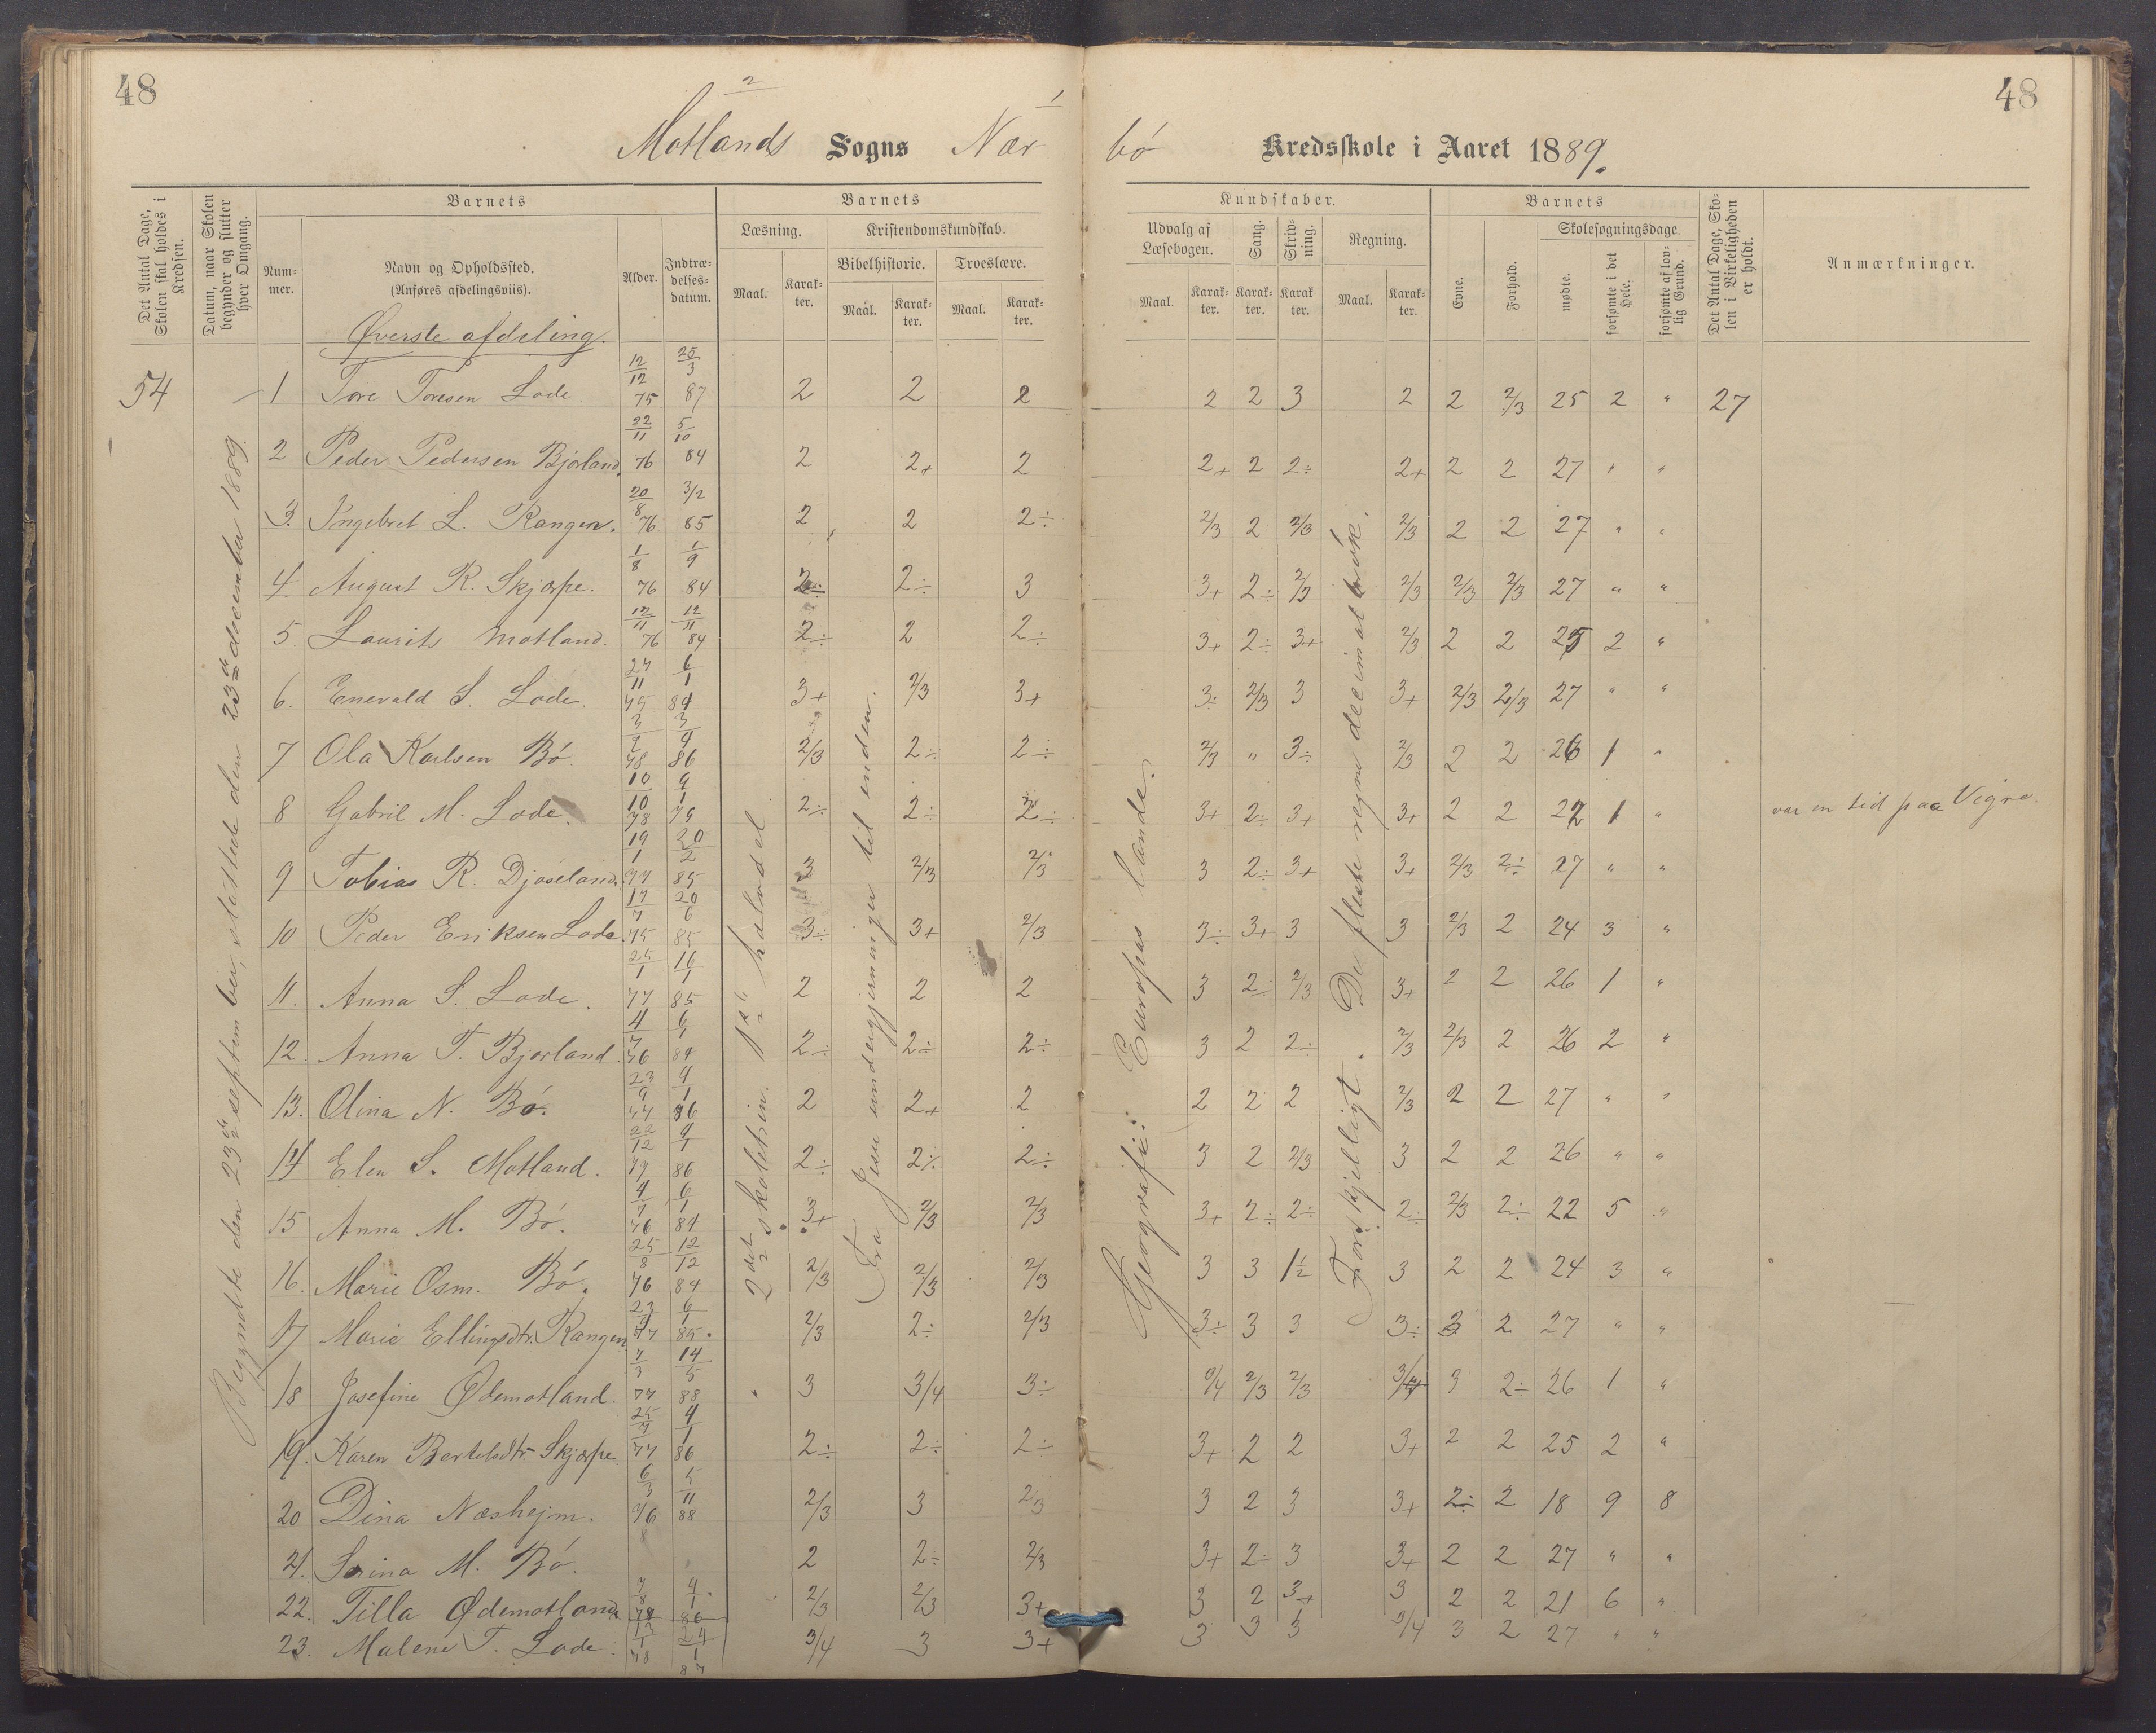 48
48
2
1
Motlands Sogns Nærbö Kredsskole i Aaret 1889.
Det Antal Dage, Skolen skal holdes i Kredsen.
Datum, naar Skolen begynder og slutter hver Omgang.
Barnets
Nummer.
Navn og Opholdssted.
(Anføres afdelingsviis).
Alder.
Indtrædelses-datum.
Barnets
Læsning.
Maal.
Karakter.
Kristendomskundskab.
Bibelhistorie.
Maal.
Karakter.
Troeslære.
Maal.
Karakter.
Kundskaber.
Udvalg af Læsebogen.
Maal.
Karakter.
Sang.
Karakter.
Skrivning.
Karakter.
Regning.
Maal.
Karakter.
Barnets
Evne.
Forhold.
Skolesøgningsdage.
mødte.
forsømte i det Hele.
forsømte af lovlig Grund.
Det Antal Dage, Skolen i Virkeligheden er holdt.
Anmærkninger.
Øverste afdeling.
54
Begyndte den 23de september, sluttede den 23de december 1889.
2det skoletrin. 1ste halvdel
Fra Jesu undergjerninger til enden.
Geografi: Europas lande.
Forskjelligt. De fleste regne decimalbrök.
1 Tore Toresen Lode 12/12 75 25/3 87 2 2 2 2 2 3 2 2 2/3 25 2 " 27
2 Peder Pedersen Bjorland. 22/11 76 5/10 84 2 2+ 2 2+ 2 2÷ 2+ 2 2 27 " "
3. Ingebret L. Rangen. 20/8 76 3/2 85 2 2 2÷ 2/3 2 2/3 2/3 2 2 27 " "
4. August R. Skjærpe. 1/8 76 1/9 84 2÷ 2÷ 3 3+ 2÷ 2/3 2/3 2/3 2/3 27 " "
5. Laurits Motland. 12/11 76 12/11 84 2÷ 2 2÷ 3+ 2÷ 3+ 2/3 2 2 25 2 "
6. Enevald S. Lode. 27/11 75 6/1 84 3+ 2/3 3+ 3÷ 2/3 3 3+ 2/3 2/3 27 " "
7 Ola Karlsen Bö. 78 86 2/3 2÷ 2÷ 2/3 " 3÷ 2/3 2 2 26 1 "
8 Gabril M. Lode. 10/10 78 9/1 2÷ 2÷ 2÷ 3+ 2÷ 3+ 3+ 2 2 22 1 " var en tid paa Vigre.
9 Tobias R. Djøseland. 19/1 77 20/2 85 3 2/3 2/3 3 2÷ 3+ 3+ 2/3 2÷ 27 " "
10 Peder Eriksen Lode. 17/7 75 20/6 85 3÷ 3+ 2/3 3÷ 3+ 3 3 2/3 2 24 3 "
11. Anna S. Lode. 25/1 77 16/1 85 2 2 2 3 2÷ 2/3 3+ 2 2 26 1 "
12. Anna T. Bjorland. 4/7 76 6/1 84 2÷ 2÷ 2÷ 3 2 2÷ 2/3 2/3 2 26 2 "
13. Olina N. Bö. 23/9 77 4/1 86 2 2+ 2 2 2 2 2/3 2 2 27 " "
14 Elen S. Motland. 22/12 77 4/1 86 2÷ 2÷ 2÷ 3 2 2/3 3 2 2 26 " "
15 Anna M. Bö. 4/7 76 6/1 84 3+ 2/3 2/3 3+ 2÷ 2÷ 2÷ 2/3 2÷ 22 5 "
16. Marie Osm. Bö. 25/8 76 12/12 84 2/3 2/3 2/3 3 3 1½ 3 2 2 24 3 "
17 Marie Ellingsdtr. Rangen 77 6/1 85. 2/3 2÷ 2/3 3÷ 3 3 3÷ 2 27 " "
18 Josefine Ødemotland. 7/3 77 14/5 88 3 3/4 3÷ 3/4 2/3 2/3 3/4 3 2÷ 26 1 "
19. Karen Bertelsdtr. Skjærpe. 25/7 77 4/1 86 2÷ 2÷ 2÷ 3+ 2 2 3+ 2 2 25 2 "
20 Dina Næshejm. 6/3 76 5/11 88 2/3 3 2/3 3 2 3 3+ 2÷ 2 18 9 8
21. Serina M. Bö. 2 2÷ 2/3 3+ 2÷ 3 3+ 2 2 27 " "
22. Tilla Ødemotland 78 4/1 86 2/3 2/3 3+ 3 2 3+ 3 2 2 21 6 "
23. Malene T. Lode. 13/1 78 24/1 87 3/4 3 3+ 3 3 3 3/4 3 2 27 " "